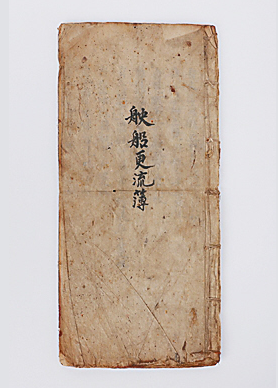 船更流簿